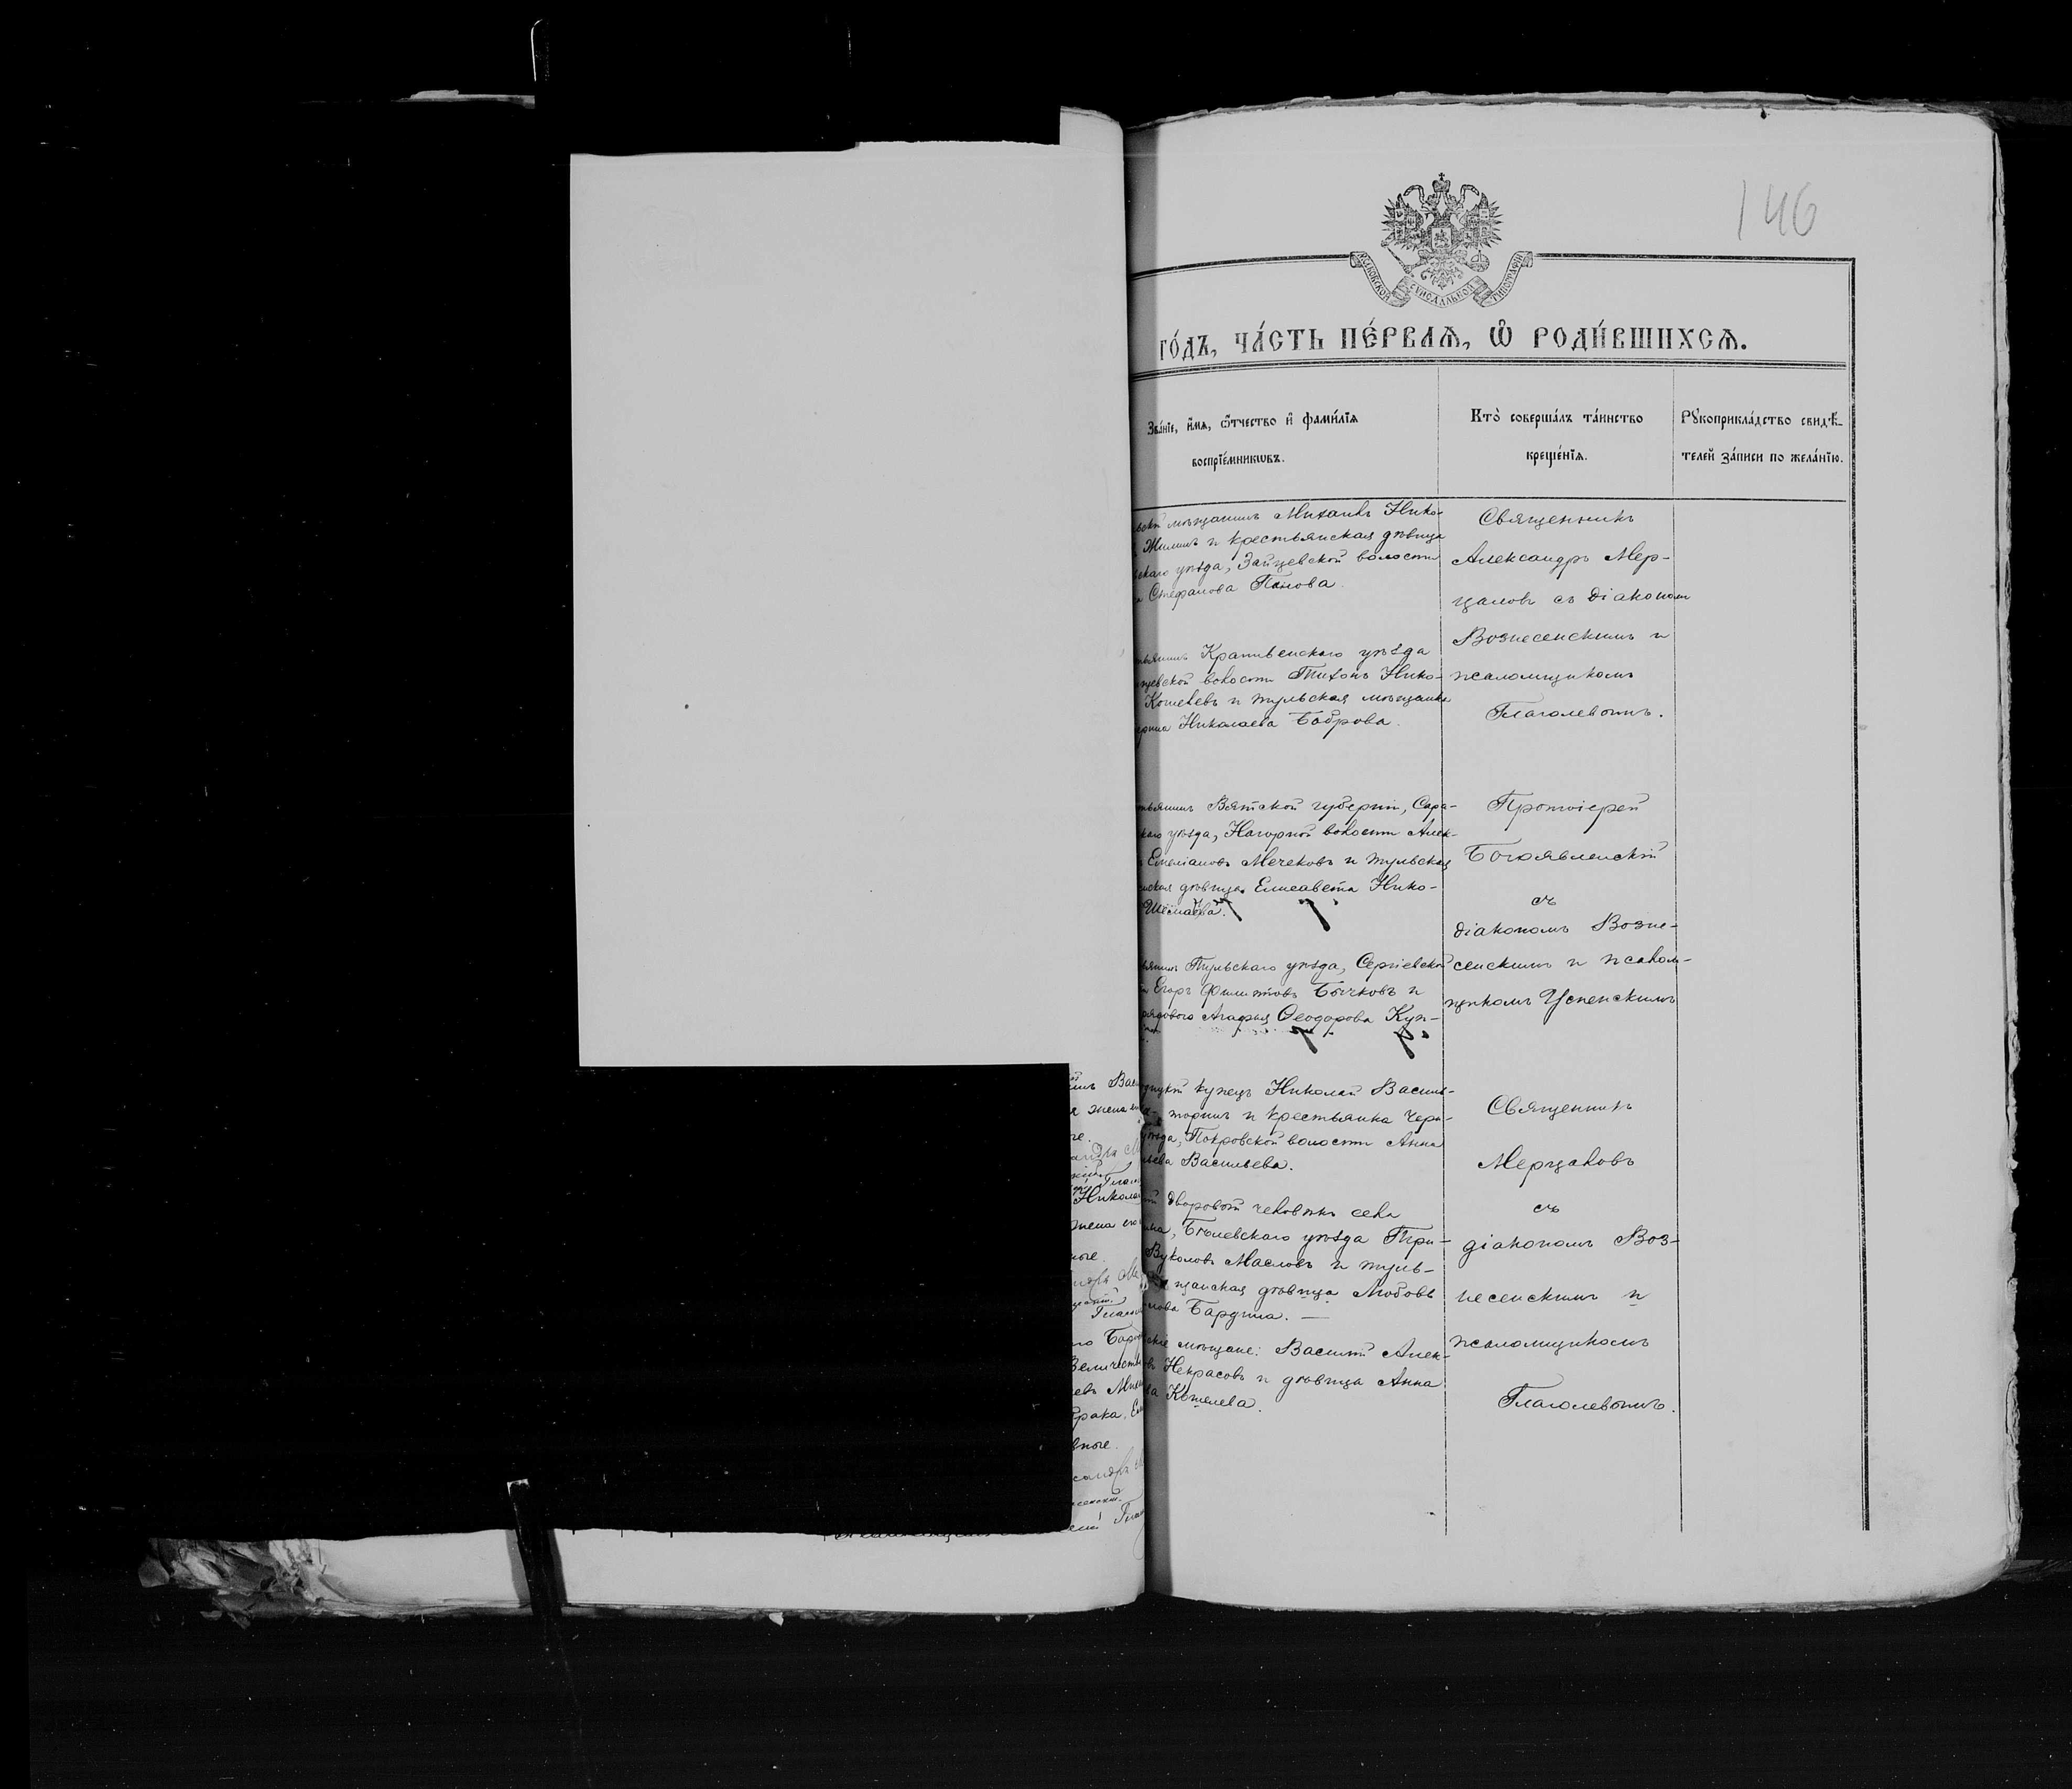 146
МОСКОВСКОЙ СѴНОДАЛЬНОЙ ТИПОГРАФІИ
ГО́ДЪ, ЧА́СТЬ ПЕ́РВАѦ, Ѽ РОДИ́ВШИХСѦ.
Зва́нїе, и҆́мѧ, ѻ҆́тчество и҆ фами́лїѧ
воспрїе́мникѡвъ.
Кто̀ соверша́лъ та́инство
креще́нїѧ.
Рꙋкоприкла́дство свидѣ-
телей за́писи по жела́нїю.
мѣщанинъ Михаилъ Нико-
Жилинъ и крестьянская дѣвица
уѣзда, Зайцевской волости
Стефанова Панова.
Священникъ
Александръ Мер-
цаловъ съ діакономъ
Вознесенскимъ и
псаломщикомъ
Глаголевымъ.
Крапивенскаго уѣзда
волости Тихонъ Нико-
Кошелевъ и тульская мѣщанка
Николаева Боброва.
Вятской губерніи, Сара-
уѣзда, Нагорной волости Алек-
Емеліановъ Мечековъ и тульская
дѣвица Елисавета Нико-
Шемаева.
Протоіерей
Богоявленскій
съ
діакономъ Возне-
сенскимъ и псалом-
щикомъ Успенскимъ
Тульскаго уѣзда, Сергіевской
Егоръ Филиповъ Бычковъ и
Агафья Ѳеодорова Куп-
купецъ Николай Василь-
и крестьянка Черн-
уѣзда, Покровской волости Анна
Васильева.
Священникъ
Мерцаловъ
съ
діакономъ Воз-
несенскимъ и
псаломщикомъ
Глаголевымъ.
дворовой человѣкъ села
Бѣлевскаго уѣзда Гри-
Вуколовъ Масловъ и туль-
щанская дѣвица Любовь
Бардина. —
мѣщане: Василій Алек-
Некрасовъ и дѣвица Анна
Кошелева.